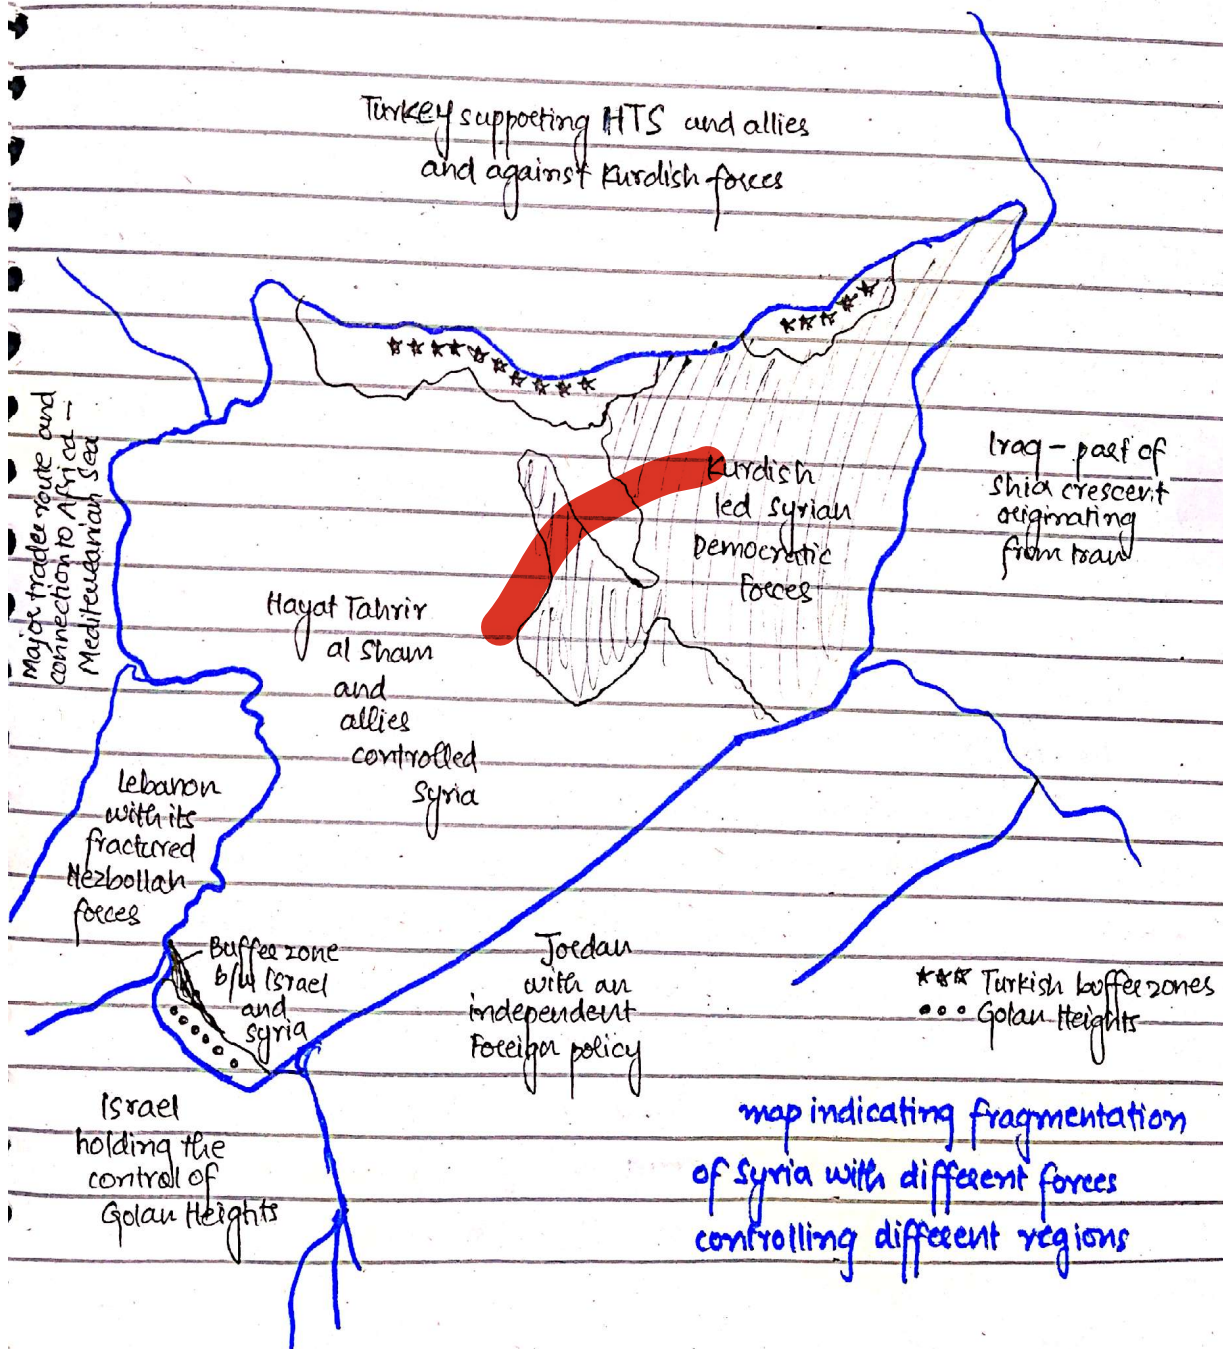 Turkey supporting HTS and allies
and against Kurdish forces
Major trade route and
connection to Africa –
Mediteranian sea
Kurdish
led Syrian
Democratic
Forces
Iraq – part of
shia crescent
originating
from Iran
Hayat Tahrir
al Sham
and
allies
controlled
Syria
Lebanon
with its
fractured
Hezbollah
forces
Buffer zone
b/w Israel
and
Syria
Jordan
with an
independent
Foreign policy
*** Turkish buffer zones
••• Golan Heights
Israel
holding the
control of
Golan Heights
map indicating fragmentation
of Syria with different forces
controlling different regions